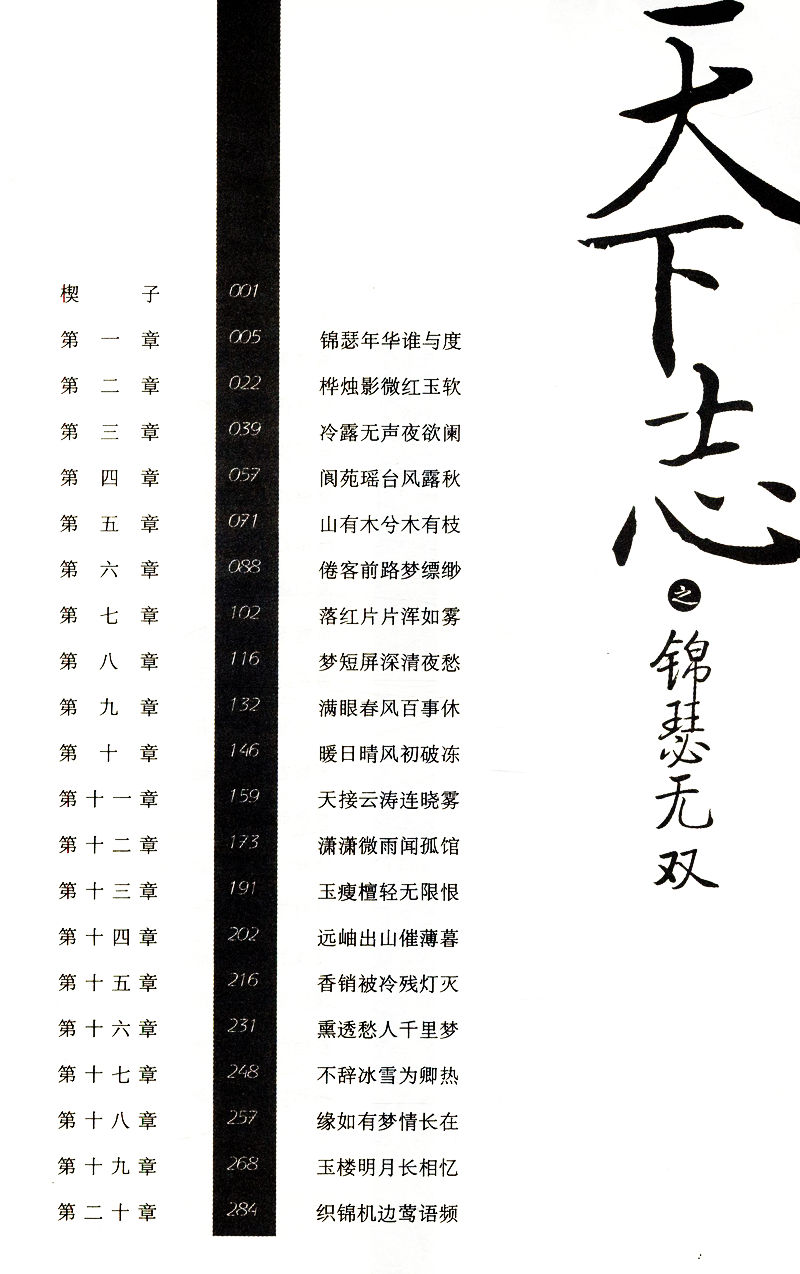 天下志
之
锦瑟无双
楔子 001
第一章 005 锦瑟年华谁与度
第二章 022 桦烛影微红玉软
第三章 039 冷露无声夜欲阑
第四章 057 阆苑瑶台风露秋
第五章 071 山有木兮木有枝
第六章 088 倦客前路梦缥缈
第七章 102 落红片片浑如雾
第八章 116 梦短屏深清夜愁
第九章 132 满眼春风百事休
第十章 146 暖日晴风初破冻
第十一章 159 天接云涛连晓雾
第十二章 173 潇潇微雨闻孤馆
第十三章 191 玉瘦檀轻无限恨
第十四章 202 远岫出山催薄暮
第十五章 216 香销被冷残灯灭
第十六章 231 熏透愁人千里梦
第十七章 248 不辞冰雪为卿热
第十八章 257 缘如有梦情长在
第十九章 268 玉楼明月长相忆
第二十章 284 织锦机边莺语频